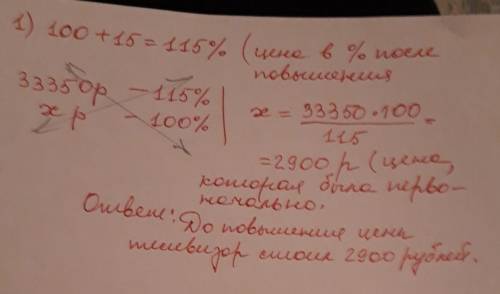 1) 100 + 15 = 115% (цена в % после
повышения
33350р – 115%
х р – 100%
х = 33350 · 100 / 115 =
= 2900 р (цена,
которая была перво-
начально.
Ответ: До повышение цены
телевизор стоил 2900 рублей.